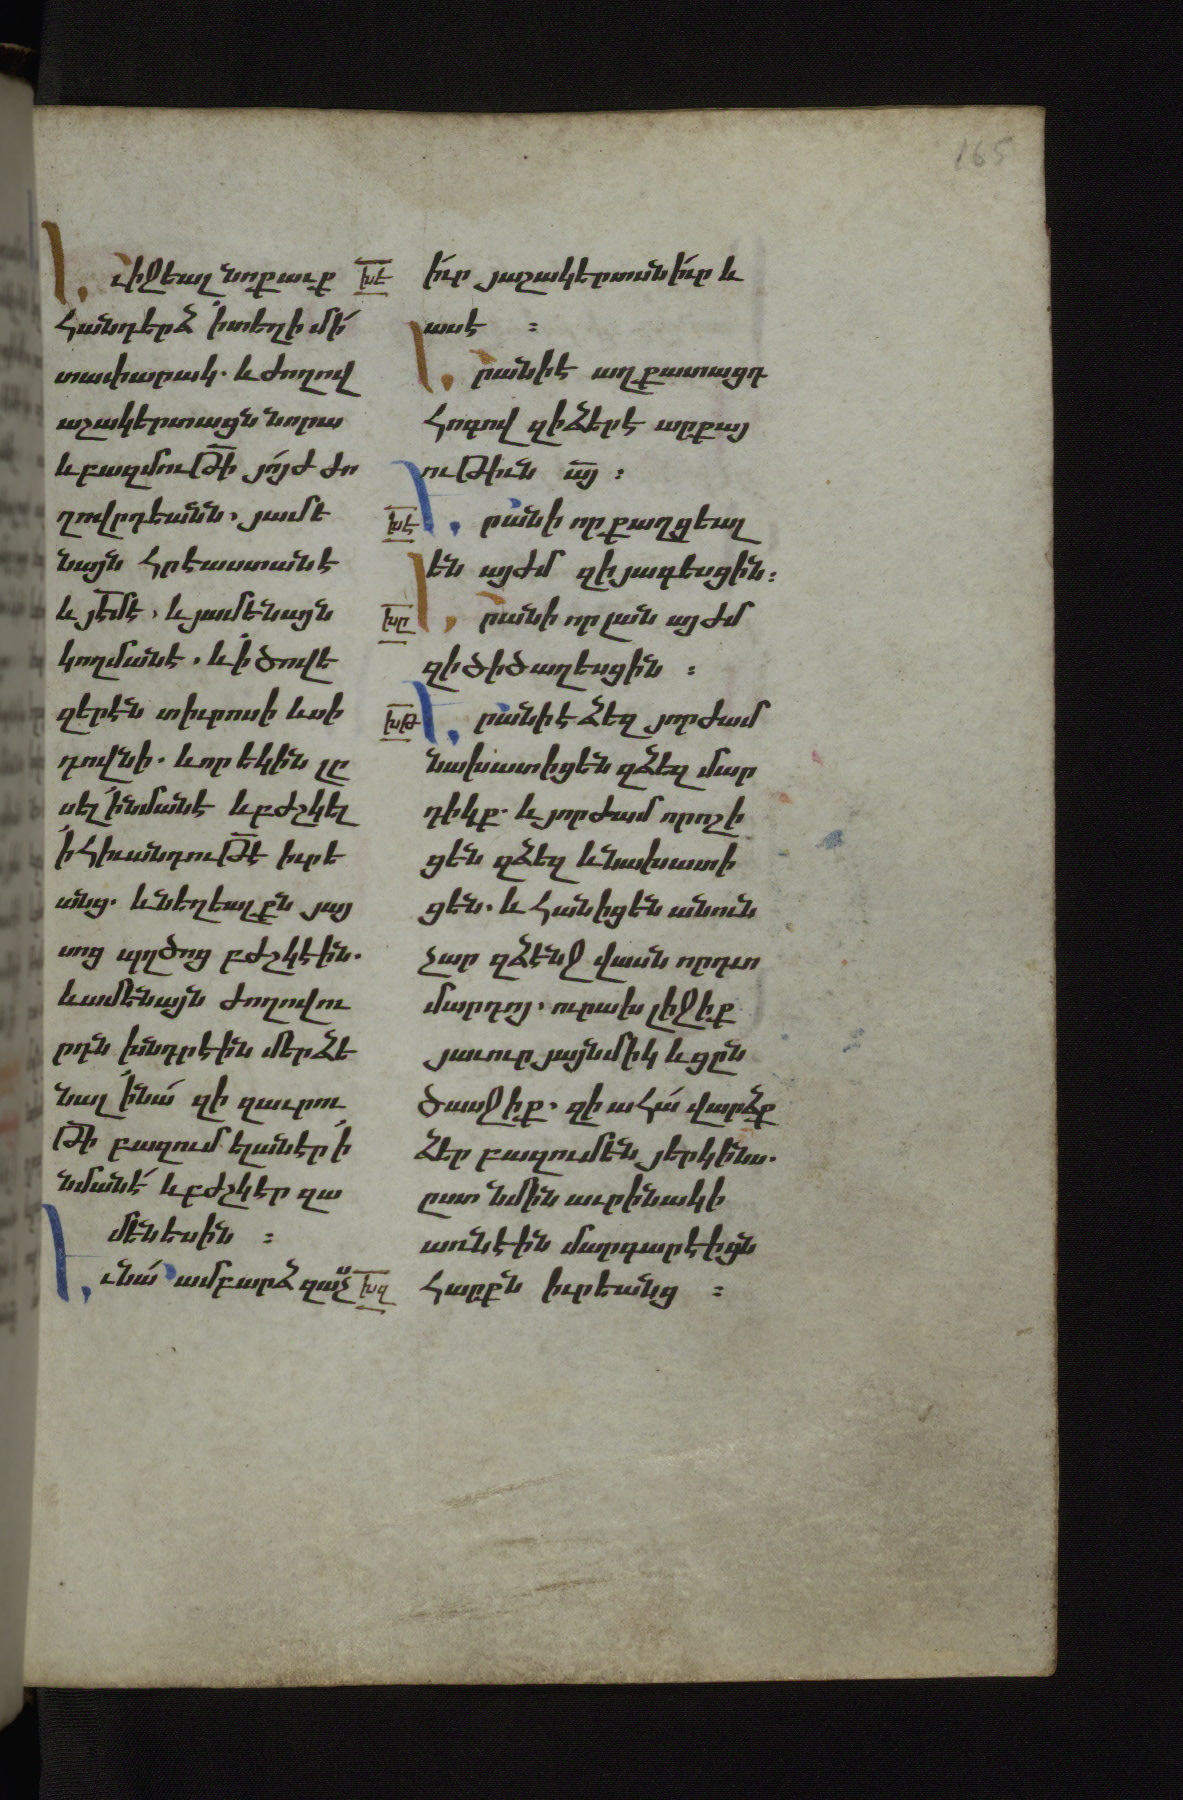 165
Եւ իջեալ նոքաւք խե
հանդերձ ի տեղի մի
տափարակ. և ժողով
աշակերտացն նորա
և բազմութի յոյժ ժո
ղովրդեանն, յամե
նայն հրէաստանէ
և յէմէ, և յամենայն
կողմանէ, և ի ծովե
զերէն տիւրոսի և սի
դովնի. և որ եկին լը
սել ի նմանէ և բժշկել
ի հիւանդութէ իւրե
անց. և նեղեալքն յայ
սոց պղծոց բժշկէին.
և ամենայն ժողովու
րդն խնդրէին մերձե
նալ ի նա զի զաւրու
թի բազում ելանէր ի
նմանէ և բժշկէր զա
մենեսին :
Եւ նա ամբարձ զաչս խզ
իւր յաշակերտսն իւր և
ասէ :
Երանի է աղքատացդ
հոգով զի ձեր է արքայ
ութիւն այ :
խէ Երանի որ քաղցեալ
են այժմ զի յագեսցին :
խը Երանի որ լան այժմ
զի ծիծաղեսցին :
խթ Երանի է ձեզ յորժամ
նախատիցեն զձեզ մար
դիկք. և յորժամ որոշի
ցեն զձեզ և նախատի
ցեն. և հանիցեն անուն
չար զձէնջ վասն որդւո
մարդոյ, ուրախ լիջիք
յաւուր յայնմիկ և ցըն
ծասջիք. զի ահա վարձք
ձեր բազում են յերկինս.
ըստ նմին աւրինակի
առնէին մարգարէիցն
հարքն իւրեանց :